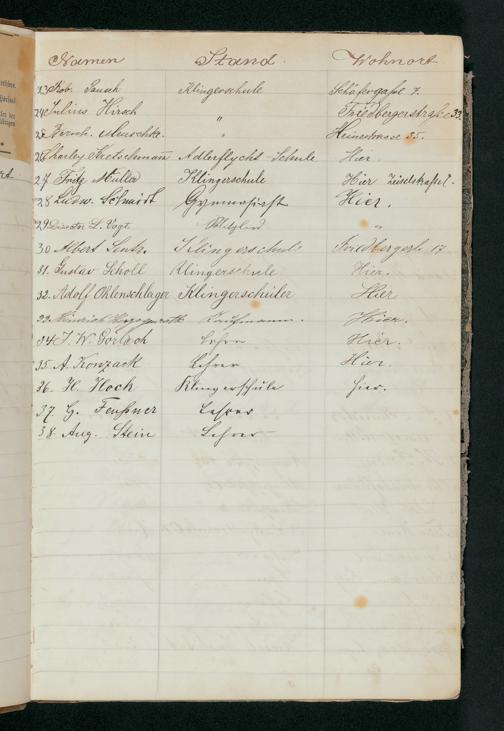 Namen Stand. Wohnort
23 Rob. Klingerschule Schäfergaße 7.
24 Julius Hirsch " Friedbergerstraße 32
25 " Heinestrasse 35.
26 Charley Kretschmann Adlerflycht-Schule Hier.
27 Fritz Müller Klingerschule Hier
28 Ludw. Schmidt Gymnasiast Hier.
29 Director L. Vogt. Mitglied "
30 Albert Lutz. Klingerschule Friedbergerls. 17
31. Gustav Scholl Klingerschule Hier.
32. Adolf Ohlenschlager Klingerschüler Hier
33 Heinrich Kaufmann. Hier.
34 J. W. Gerlach Lehrer Hier.
35. A. Konzack Lehrer Hier.
36. H. Hoch Klingerschüle hier.
37. G. Feußner Lehrer
38. Aug. Stein Lehrer